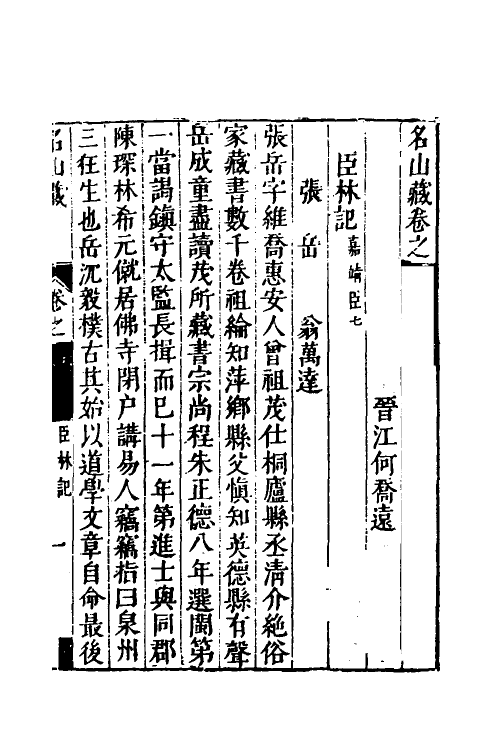 名山藏卷之
晉江何喬遠
臣林記嘉靖臣七
張岳 翁萬達
張岳字維喬惠安人曾祖茂仕桐廬縣丞清介絶俗
家藏書數千卷祖綸知萍鄉縣父愼知英德縣有聲
岳成童盡讀茂所藏書宗尚程朱正德八年選閩第
一當謁鎮守太監長揖而已十一年第進士與同郡
陳琛林希元僦居佛寺閉户講易人竊竊指曰泉州
三狂生也岳沉毅樸古其始以道學文章自命最後
名山藏 卷之 臣林記 一